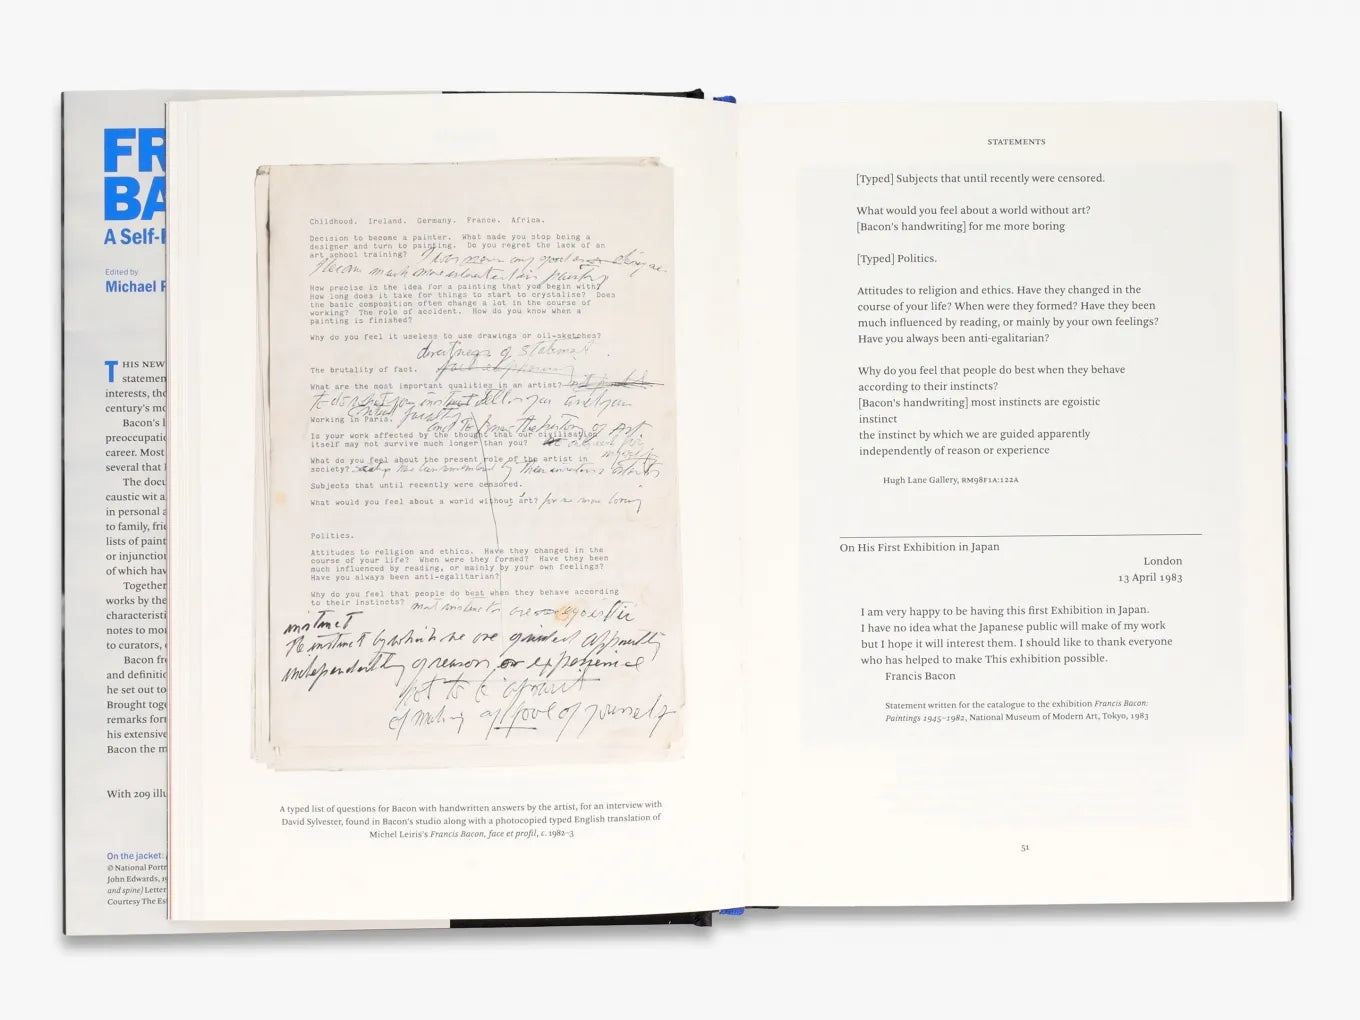 FR
BA
A Self-
Edited by
Michael P
THIS NEW
statemen
interests, the
century's mo
Bacon's l
preoccupatio
career. Most
several that
The docu
caustic wit a
in personal a
to family, frie
lists of paint
or injunction
of which hav
Together
works by the
characteristi
notes to mo
to curators,
Bacon fr
and definiti
he set out to
Brought toge
remarks for
his extensive
Bacon the m
With 209 illu
On the jacket:
© National Portr
John Edwards, 19
and spine) Letter
Courtesy The Est
Childhood. Ireland. Germany. France. Africa.
Decision to become a painter. What made you stop being a
designer and turn to painting. Do you regret the lack of an
art school training?
How precise is the idea for a painting that you begin with?
How long does it take for things to start to crystalise? Does
the basic composition often change a lot in the course of
working? The role of accident. How do you know when a
painting is finished?
Why do you feel it useless to use drawings or oil-sketches?
directness of statement
The brutality of fact.
What are the most important qualities in an artist?
Working in Paris.
and to know the history of Art
Is your work affected by the thought that our civilisation
itself may not survive much longer than you?
What do you feel about the present role of the artist in
society?
Subjects that until recently were censored.
What would you feel about a world without art? for me more boring
Politics.
Attitudes to religion and ethics. Have they changed in the
course of your life? When were they formed? Have they been
much influenced by reading, or mainly by your own feelings?
Have you always been anti-egalitarian?
Why do you feel that people do best when they behave according
to their instincts? most instincts are egoistic
instinct
the instinct by which we are guided apparently
independently of reason or experience
not to be afraid
of making a fool of yourself
A typed list of questions for Bacon with handwritten answers by the artist, for an interview with
David Sylvester, found in Bacon's studio along with a photocopied typed English translation of
Michel Leiris's Francis Bacon, face et profil, c. 1982–3
STATEMENTS
[Typed] Subjects that until recently were censored.
What would you feel about a world without art?
[Bacon's handwriting] for me more boring
[Typed] Politics.
Attitudes to religion and ethics. Have they changed in the
course of your life? When were they formed? Have they been
much influenced by reading, or mainly by your own feelings?
Have you always been anti-egalitarian?
Why do you feel that people do best when they behave
according to their instincts?
[Bacon's handwriting] most instincts are egoistic
instinct
the instinct by which we are guided apparently
independently of reason or experience
Hugh Lane Gallery, RM98F1A:122A
On His First Exhibition in Japan
London
13 April 1983
I am very happy to be having this first Exhibition in Japan.
I have no idea what the Japanese public will make of my work
but I hope it will interest them. I should like to thank everyone
who has helped to make This exhibition possible.
Francis Bacon
Statement written for the catalogue to the exhibition Francis Bacon:
Paintings 1945–1982, National Museum of Modern Art, Tokyo, 1983
51